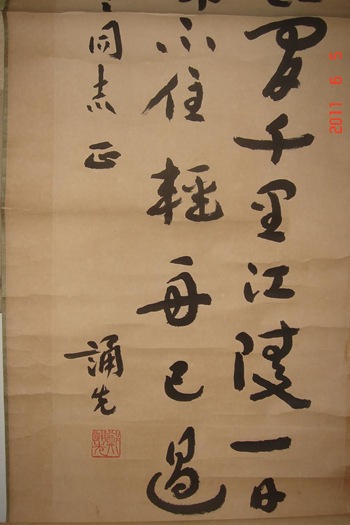 間千里江陵一日
不住輕舟已過
同志正
誦先
2011 6 5